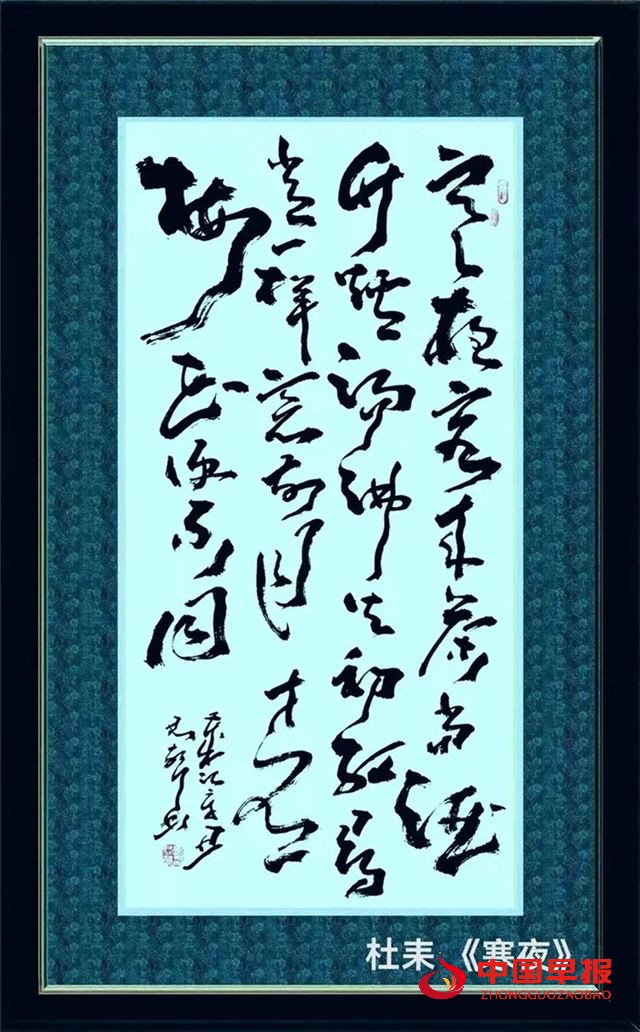 寒夜客来茶当酒
竹炉汤沸火初红寻
常一样窗前月才有
梅花便不同
杜耒 《寒夜》
中国早报
ZHONGGUOZAOBAO